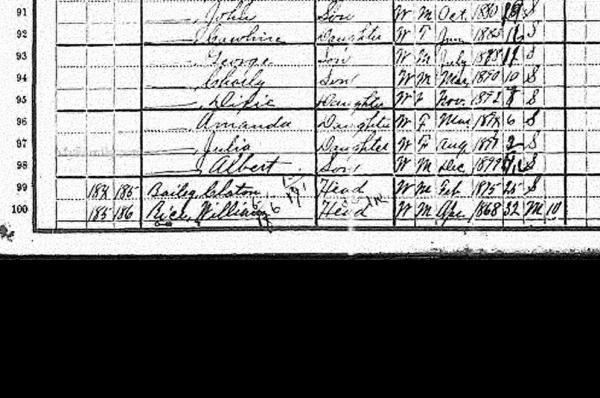 91 John Son W M Oct 1880 19 S
92 Daughter W F Jun 1883 S
93 George Son W M July 1888 11 S
94 Charly Son W M Mar 1890 10 S
95 Dixie Daughter W F Nov 1892 S
96 Amanda Daughter W F Mar 6 S
97 Julia Daughter W F Aug 1897 2 S
98 Albert Son W M Dec 1899 S
99 184 185 Bailey Head W M Feb 1875 25 S
100 185 186 Rice William Head W M Apr 1868 32 M 10